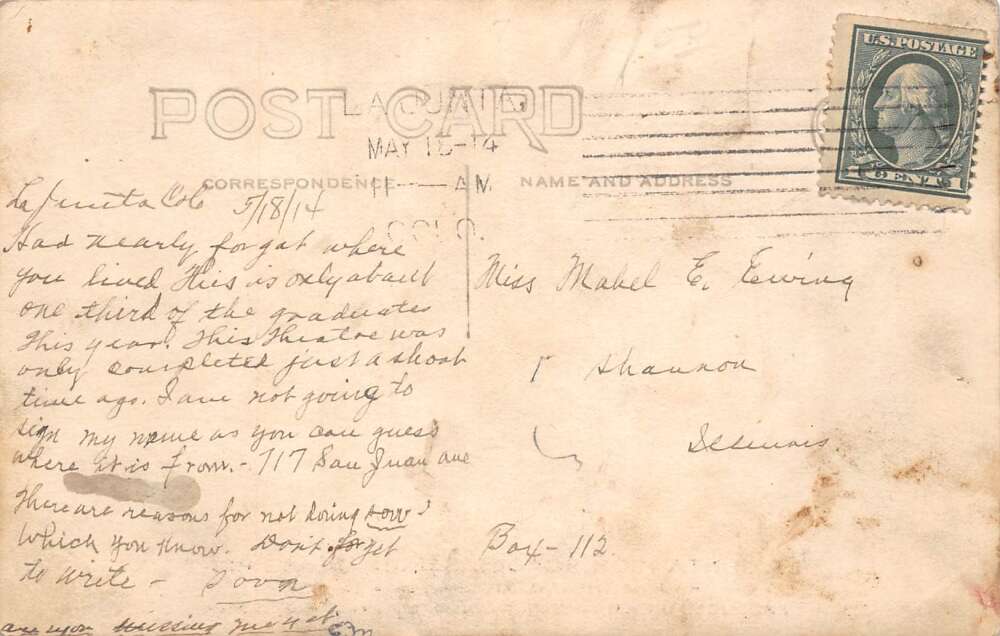 POST CARD
LA JUNTA,
MAY 18-14
11 - AM
COLO.
U.S. POSTAGE
1 CENT 1
CORRESPONDENCE
NAME AND ADDRESS
La Junta Colo 5/18/14
Had nearly forgot where
you lived This is only about
one third of the graduates
this year. This Theatre was
only completed just a short
time ago. I am not going to
sign my name as you can guess
where it is from. - 717 San Juan ave
There are reasons for not doing
which you know. Don't forget
to write - soon
are you missing
Miss Mabel E. Ewing
Shannon
Illinois
Box - 112.